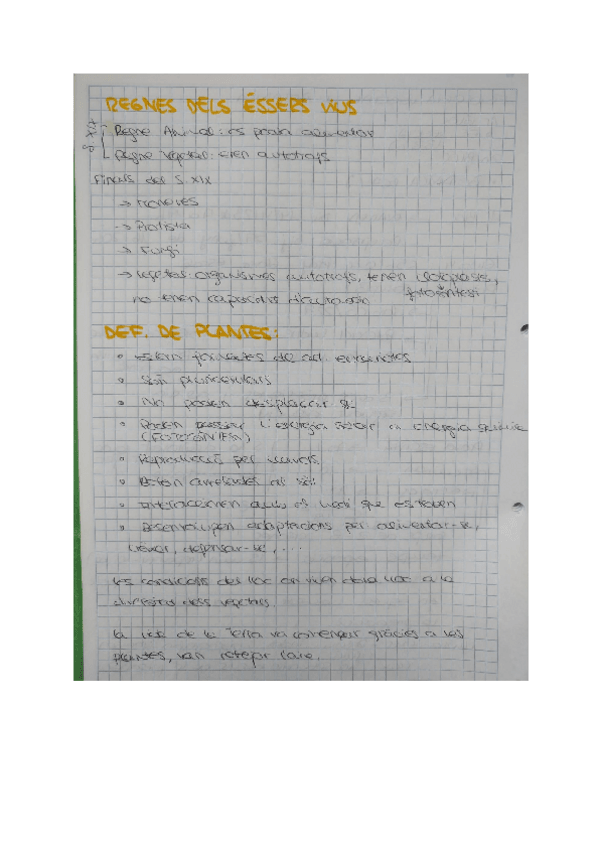 REGNES DELS ÉSSERS VIUS
Regne Animal: es podia alimentar
Regne Vegetal: eren autòtrofs
Finals del S. XIX
→ Moneres
→ Protista
→ Fungi
→ Vegetas: organismes autotrofs, tenen cloroplasts,
fotosíntesi
no tenen capacitat d'
DEF. DE PLANTES:
• estàn formades de cel. eucariotes
• Són pluricel·lulars
• No poden desplaçar-se
• Poden passar l'energia solar a energia química
(FOTOSÍNTESI)
• Reproducció per
• Estan arrelades al sòl
• Interaccionen amb el medi que es troben
• Desenvolupen adaptacions per alimentar-se,
viure, defensar-se, ...
Les condicions del lloc on viuen dona lloc a la
diversitat dels vegetals.
La vida de la Terra va començar gràcies a les
plantes, van l'aire.